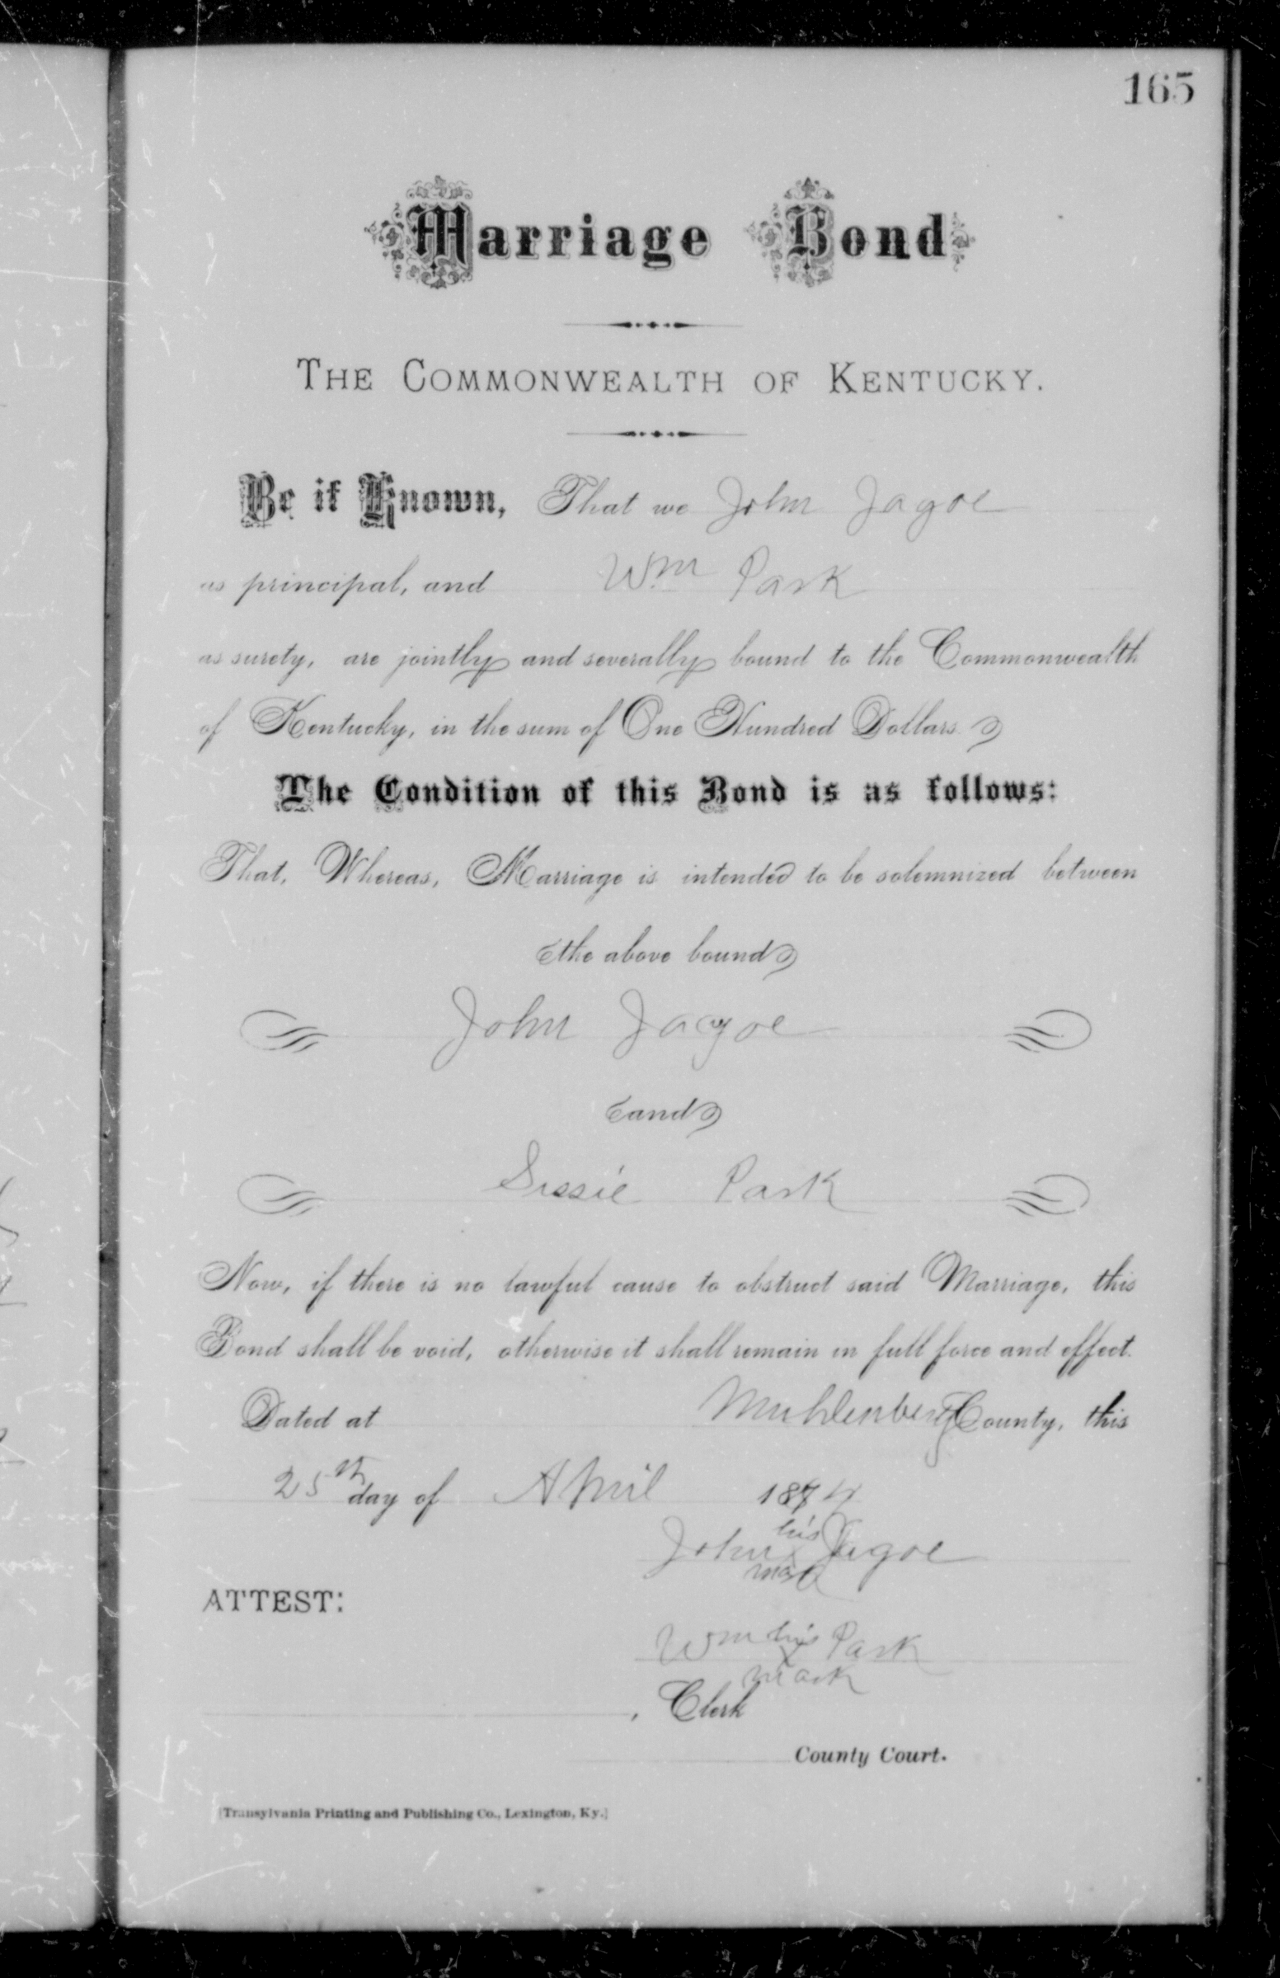 165
Marriage Bond
THE COMMONWEALTH OF KENTUCKY.
Be it Known, That we John Jagoe
as principal, and Wm Park
as surety, are jointly and severally bound to the Commonwealth
of Kentucky, in the sum of One Hundred Dollars.
The Condition of this Bond is as follows:
That, Whereas, Marriage is intended to be solemnized between
the above bound
John Jagoe
and
Sissie Park
Now, if there is no lawful cause to obstruct said Marriage, this
Bond shall be void, otherwise it shall remain in full force and effect.
Dated at Muhlenberg County, this
25th day of April 187
his
John x Jagoe
mark
ATTEST:
Wm his Park
x
mark
, Clerk
County Court.
[Transylvania Printing and Publishing Co., Lexington, Ky.]